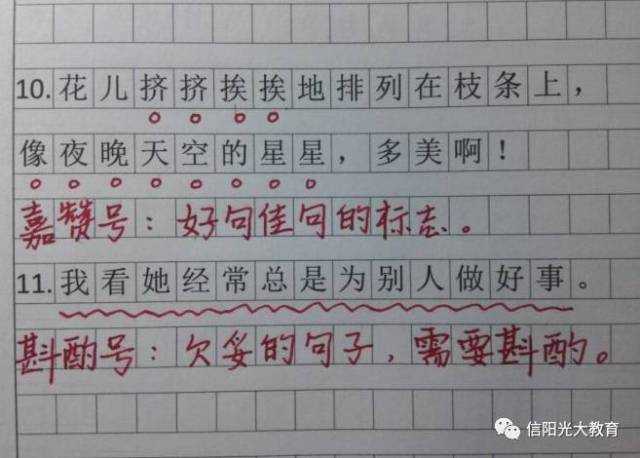 10.花儿挤挤挨挨地排列在枝条上，
像夜晚天空的星星，多美啊！
嘉赞号：好句佳句的标志。
11.我看她经常总是为别人做好事。
斟酌号：欠妥的句子，需要斟酌。
信阳光大教育